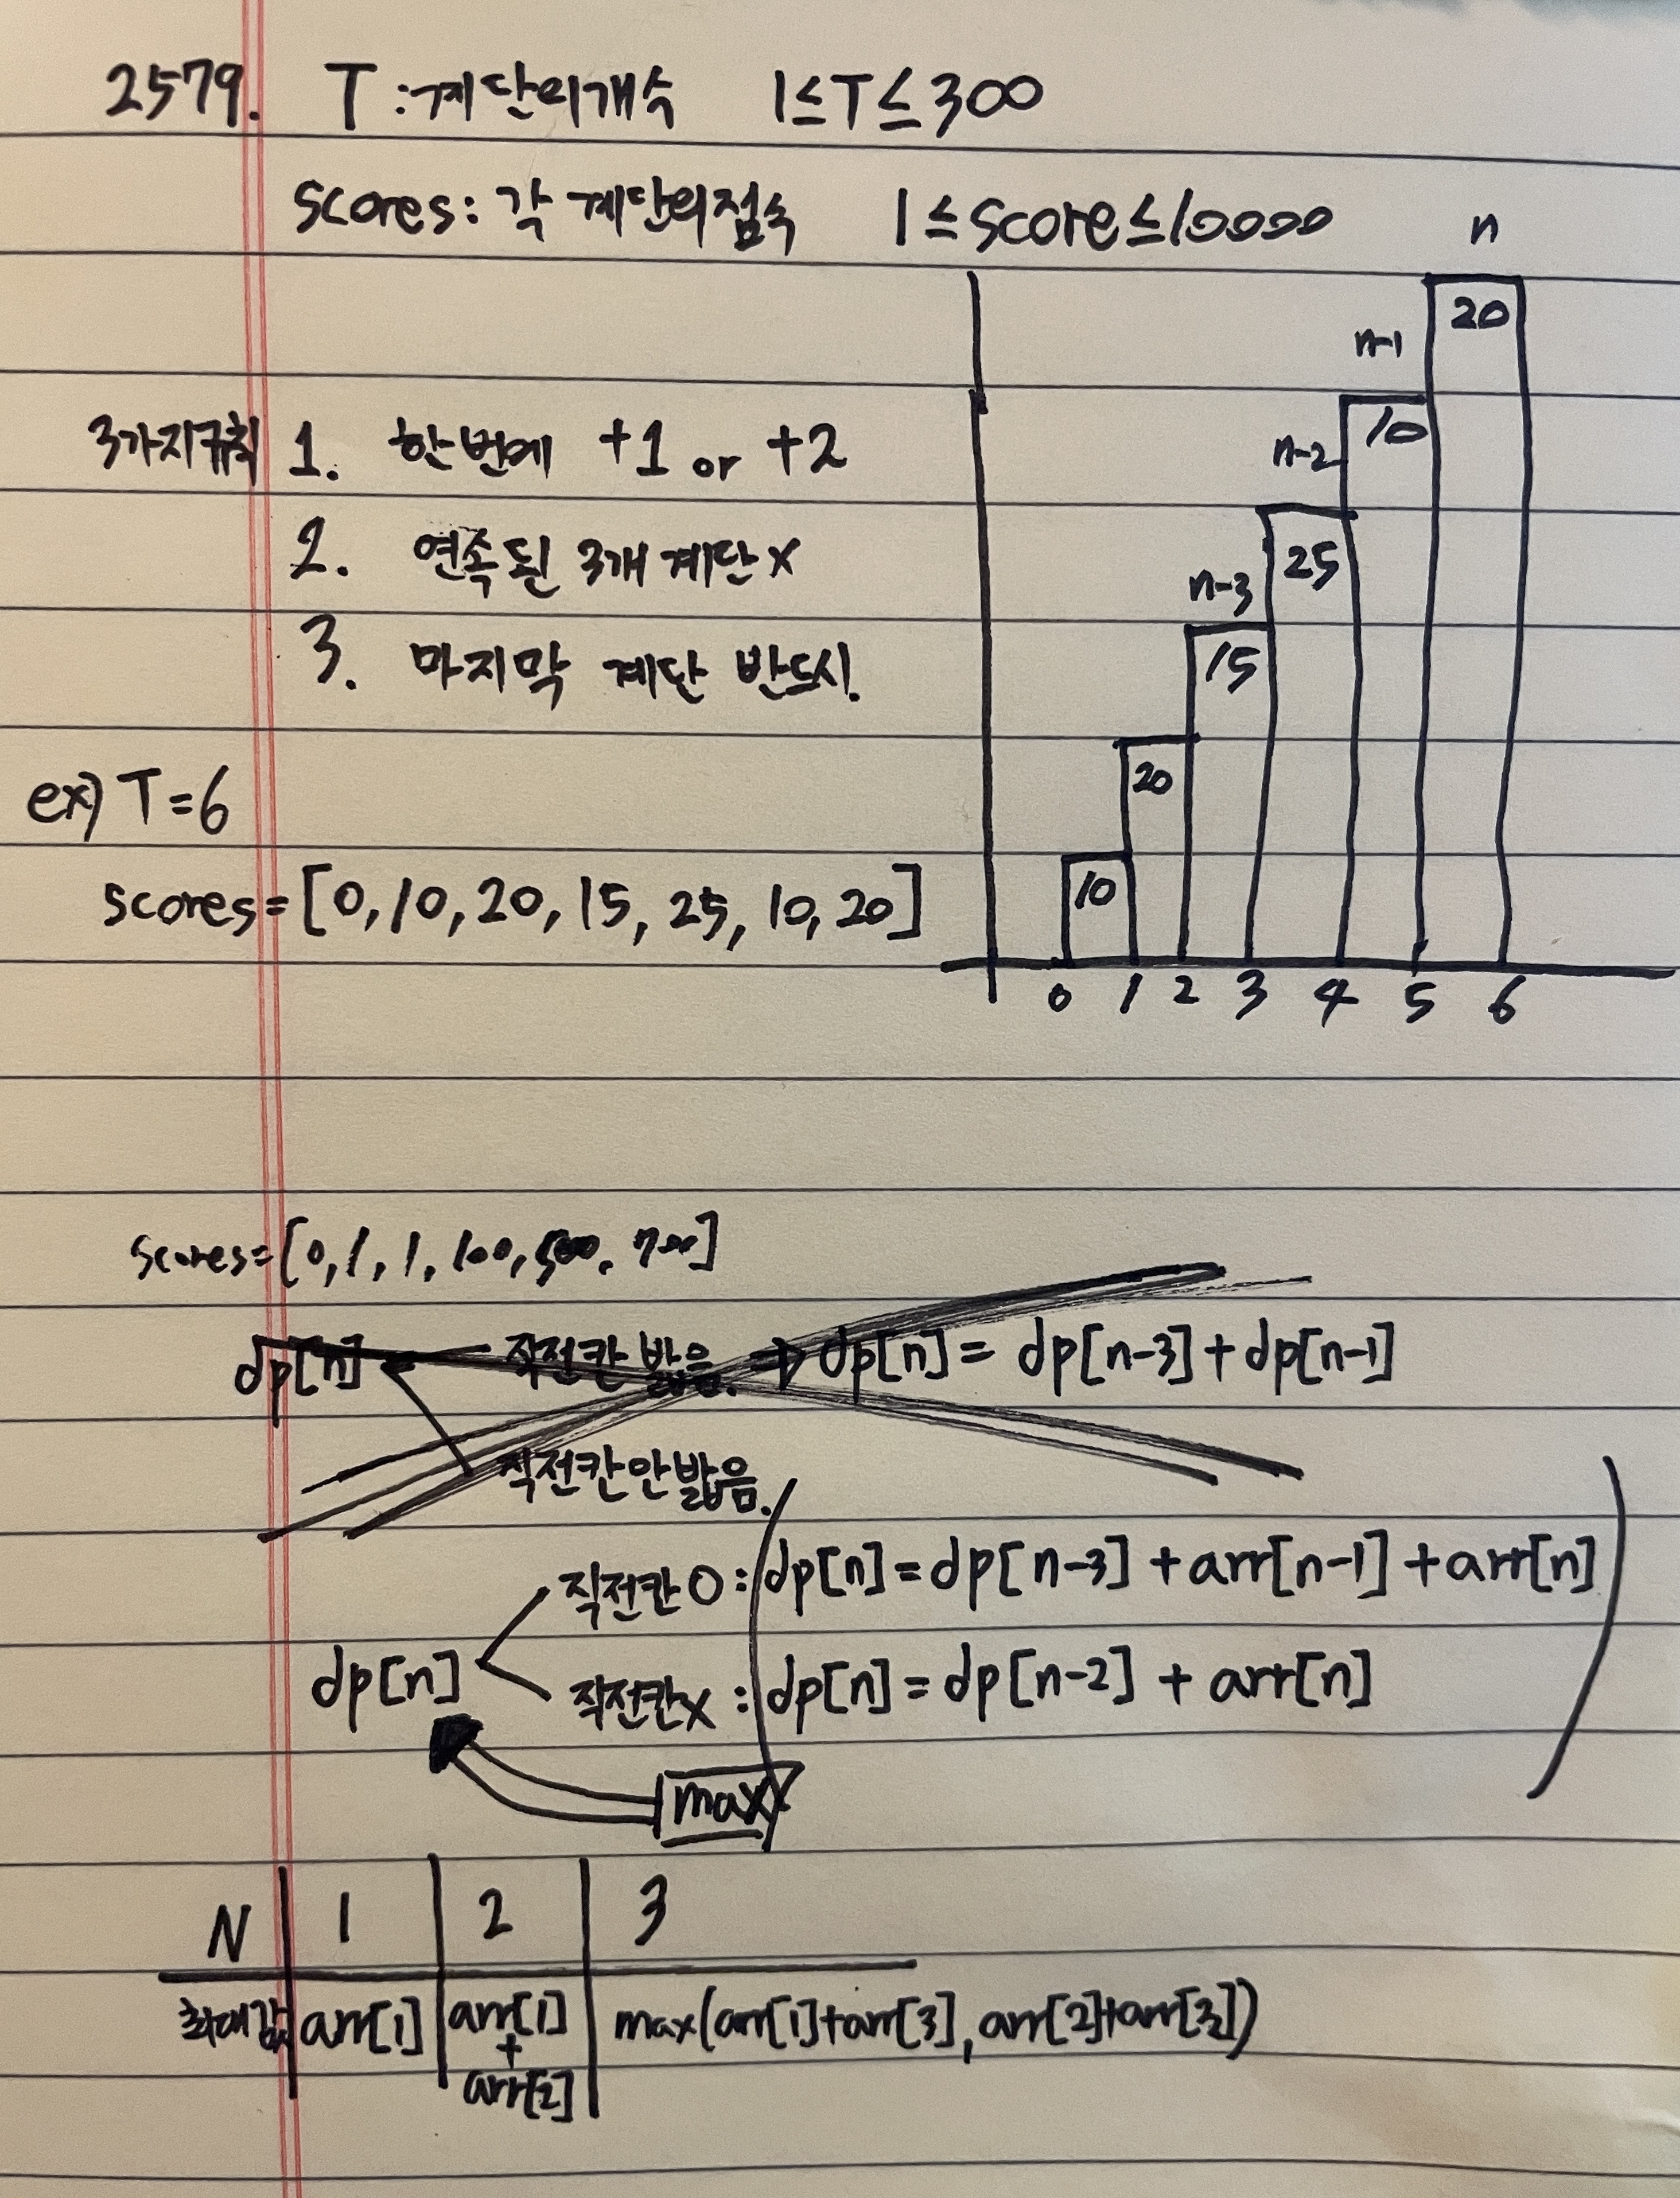 2579. T : 계단의개수 1≤T≤300
scores: 각 계단의점수 1≤score≤10000
n
20
n-1
10
3가지규칙 1. 한번에 +1 or +2
n-2
2. 연속된 3개 계단 x
25
n-3
3. 마지막 계단 반드시.
15
ex) T=6
20
scores=[0,10,20,15,25,10,20]
10
0 1 2 3 4 5 6
scores=[0,1,1,100,500,700]
dp[n] 직전칸 밟음. ⇒ dp[n] = dp[n-3]+dp[n-1]
직전칸안밟음.
직전칸O : dp[n]=dp[n-3]+arr[n-1]+arr[n]
dp[n]
직전칸x : dp[n]=dp[n-2]+arr[n]
max
N 1 2 3
최대값 arr[1] arr[1]+arr[2] max(arr[1]+arr[3], arr[2]+arr[3])